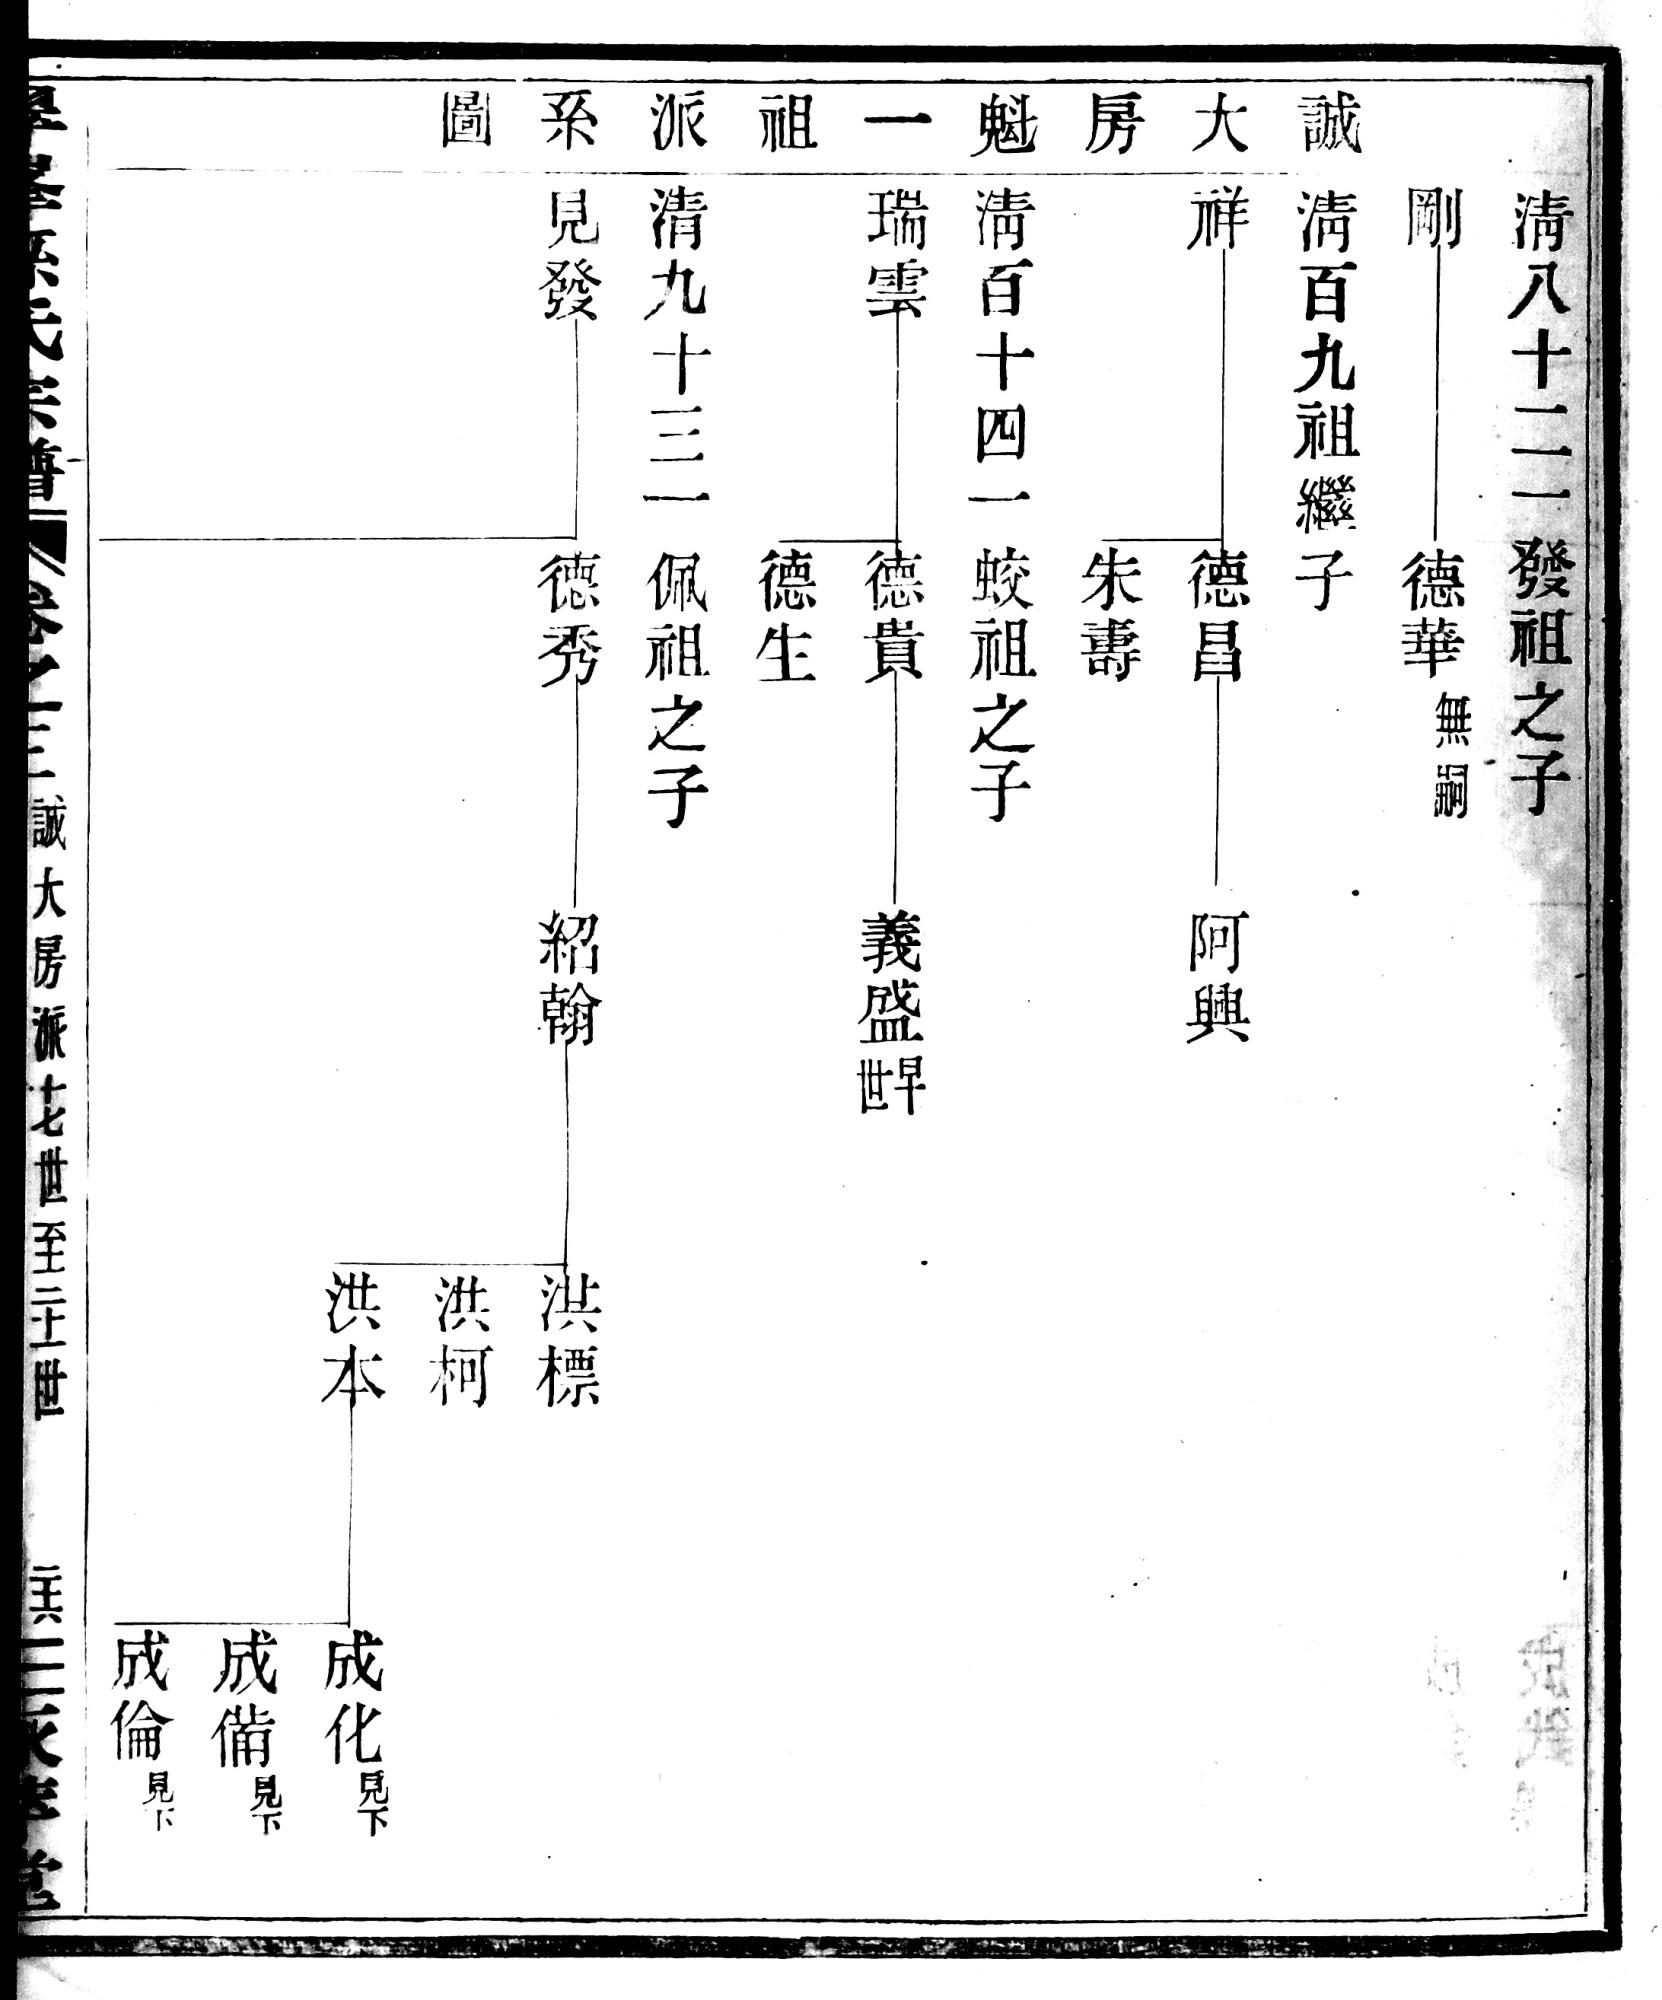 誠大房魁一祖派系圖
淸八十二一發祖之子
剛
德華無嗣
淸百九祖繼子
祥
德昌
阿興
朱壽
淸百十四一蛟祖之子
瑞雲
德貴
義盛早世
德生
清九十三一佩祖之子
見發
德秀
紹翰
洪標
洪柯
洪本
成化見下
成備見下
成倫見下
孫氏宗譜
卷之三
誠大房派十七世至二十一世
二十六
堂